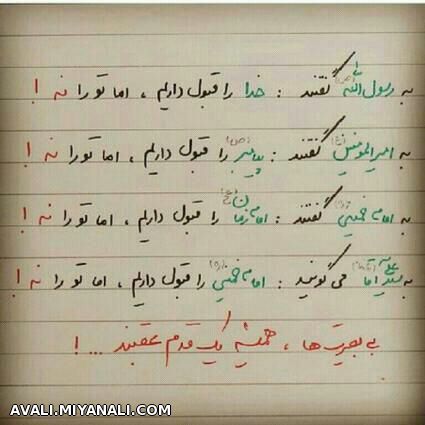 به رسول الله (ص) گفتند : خدا را قبول داریم ، اما تو را نه !
به امیرالمومنین (ع) گفتند : پیامبر (ص) را قبول داریم ، اما تو را نه !
به امام خمینی (ره) گفتند : امام زمان (عج) را قبول داریم ، اما تو را نه !
به سید علی آقا می گویند : امام خمینی (ره) را قبول داریم ، اما تو را نه !
بی بصیرت ها ، همیشه یک قدم عقبند ... !
AVALI.MIYANALI.COM